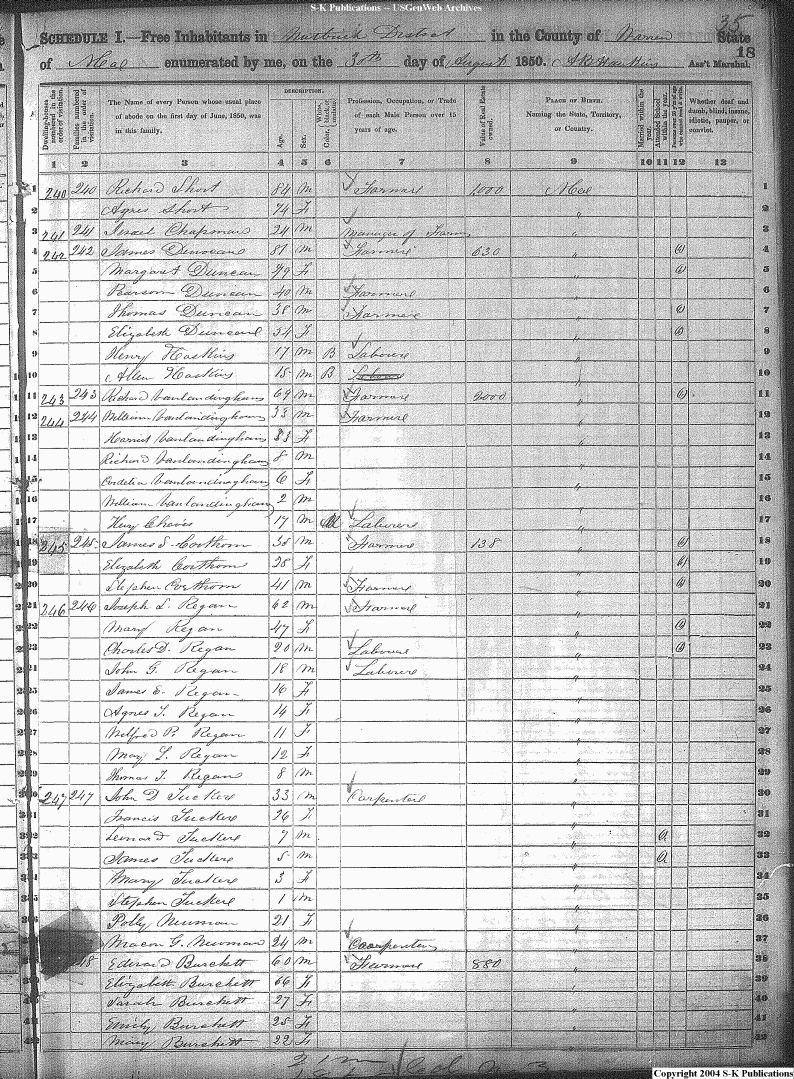 S-K Publications -- USGenWeb Archives
35
SCHEDULE I.—Free Inhabitants in Nutbush District in the County of Warren State
of enumerated by me, on the 30th day of August 1850. Ass't Marshal.
18
Dwelling-houses numbered in the order of visitation.
Families numbered in the order of visitation.
The Name of every Person whose usual place of abode on the first day of June, 1850, was in this family.
DESCRIPTION.
Age.
Sex.
White, black, or mulatto.
Color,
Profession, Occupation, or Trade of each Male Person over 15 years of age.
Value of Real Estate owned.
PLACE OF BIRTH.
Naming the State, Territory, or Country.
Married within the year.
Attended School within the year.
Persons over 20 y'rs of age who cannot read & write.
Whether deaf and dumb, blind, insane, idiotic, pauper, or convict.
1 2 3 4 5 6 7 8 9 10 11 12 13
1 240 240 Richard Short 84 m Farmer 1000 1
2 Agnes Short 74 f " 2
3 241 241 Israel Chapman 24 m manager of Farm " 3
4 242 242 James Duncan 87 m Farmer 630 " 4
5 Margaret Duncan 79 f " 5
6 Duncan 40 m Farmer " 6
7 Thomas Duncan 38 m Farmer " 7
8 Elizabeth Duncan 34 f " 8
9 Henry Haskins 17 m B Laborer " 9
10 Allen Haskins 15 m B " 10
11 243 243 Richard Vanlandingham 69 m Farmer 2000 " 11
12 244 244 William Vanlandingham 33 m Farmer " 12
13 Harriet Vanlandingham 33 f " 13
14 Richard Vanlandingham 8 m " 14
15 Cordelia Vanlandingham 6 f " 15
16 William Vanlandingham 2 m " 16
17 Chavis 17 m M Laborer " 17
18 245 245 James S. 35 m Farmer 138 " 18
19 Elizabeth 28 f " 19
20 Stephen 41 m Farmer " 20
21 246 246 Joseph L. Regan 62 m Farmer " 21
22 Mary Regan 47 f " 22
23 Charles D. Regan 20 m Laborer " 23
24 John G. Regan 18 m Laborer " 24
25 James E. Regan 16 f " 25
26 Agnes T. Regan 14 f " 26
27 P. Regan 11 f " 27
28 Mary L. Regan 12 f " 28
29 Thomas T. Regan 8 m " 29
30 247 247 John D Tucker 33 m Carpenter " 30
31 Francis Tucker 26 f " 31
32 Leonard Tucker 7 m " 32
33 James Tucker 5 m " 33
34 Mary Tucker 3 f " 34
35 Stephen Tucker 1 m " 35
36 Polly Newman 21 f " 36
37 Macon G. Newman 24 m Carpenter " 37
38 Edward Burchett 60 m Farmer 880 " 38
39 Elizabeth Burchett 66 f " 39
40 Sarah Burchett 27 f " 40
41 Emily Burchett 25 f " 41
42 Mary Burchett 22 f " 42
Copyright 2004 S-K Publications